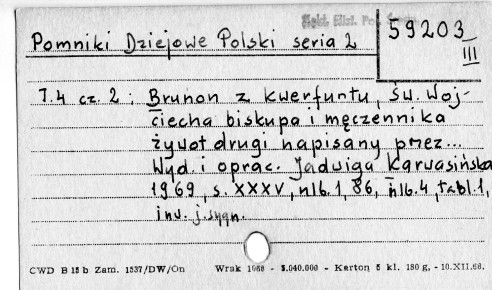 59203
III
Pomniki Dziejowe Polski seria 2
T.4 cz. 2 : Brunon z Kwerfurtu, św. Woj-
ciecha biskupa i męczennika
żywot drugi napisany przez...
Wyd. i oprac. Jadwiga Karwasińska
1969, s. XXXV, nlb. 1, 86, nlb. 4, tabl. 1,
inw. j. sygn.
CWD B 15 b Zam. 1537/DW/On Wrak 1968 - 5.040.000 - Karton 5 kl. 180 g, - 10.XII.66.